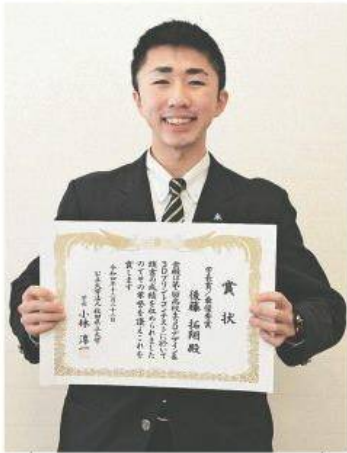 賞状
学長賞/最優秀賞
後藤拓翔殿
貴殿は第一回高校生3Dデザイン&
3Dプリントコンテストに於いて
頭書の成績を収められました
のでその栄誉を讃えこれを
賞します
令和四年十二月十八日
公立大学法人秋田県立大学
学長 小林淳一